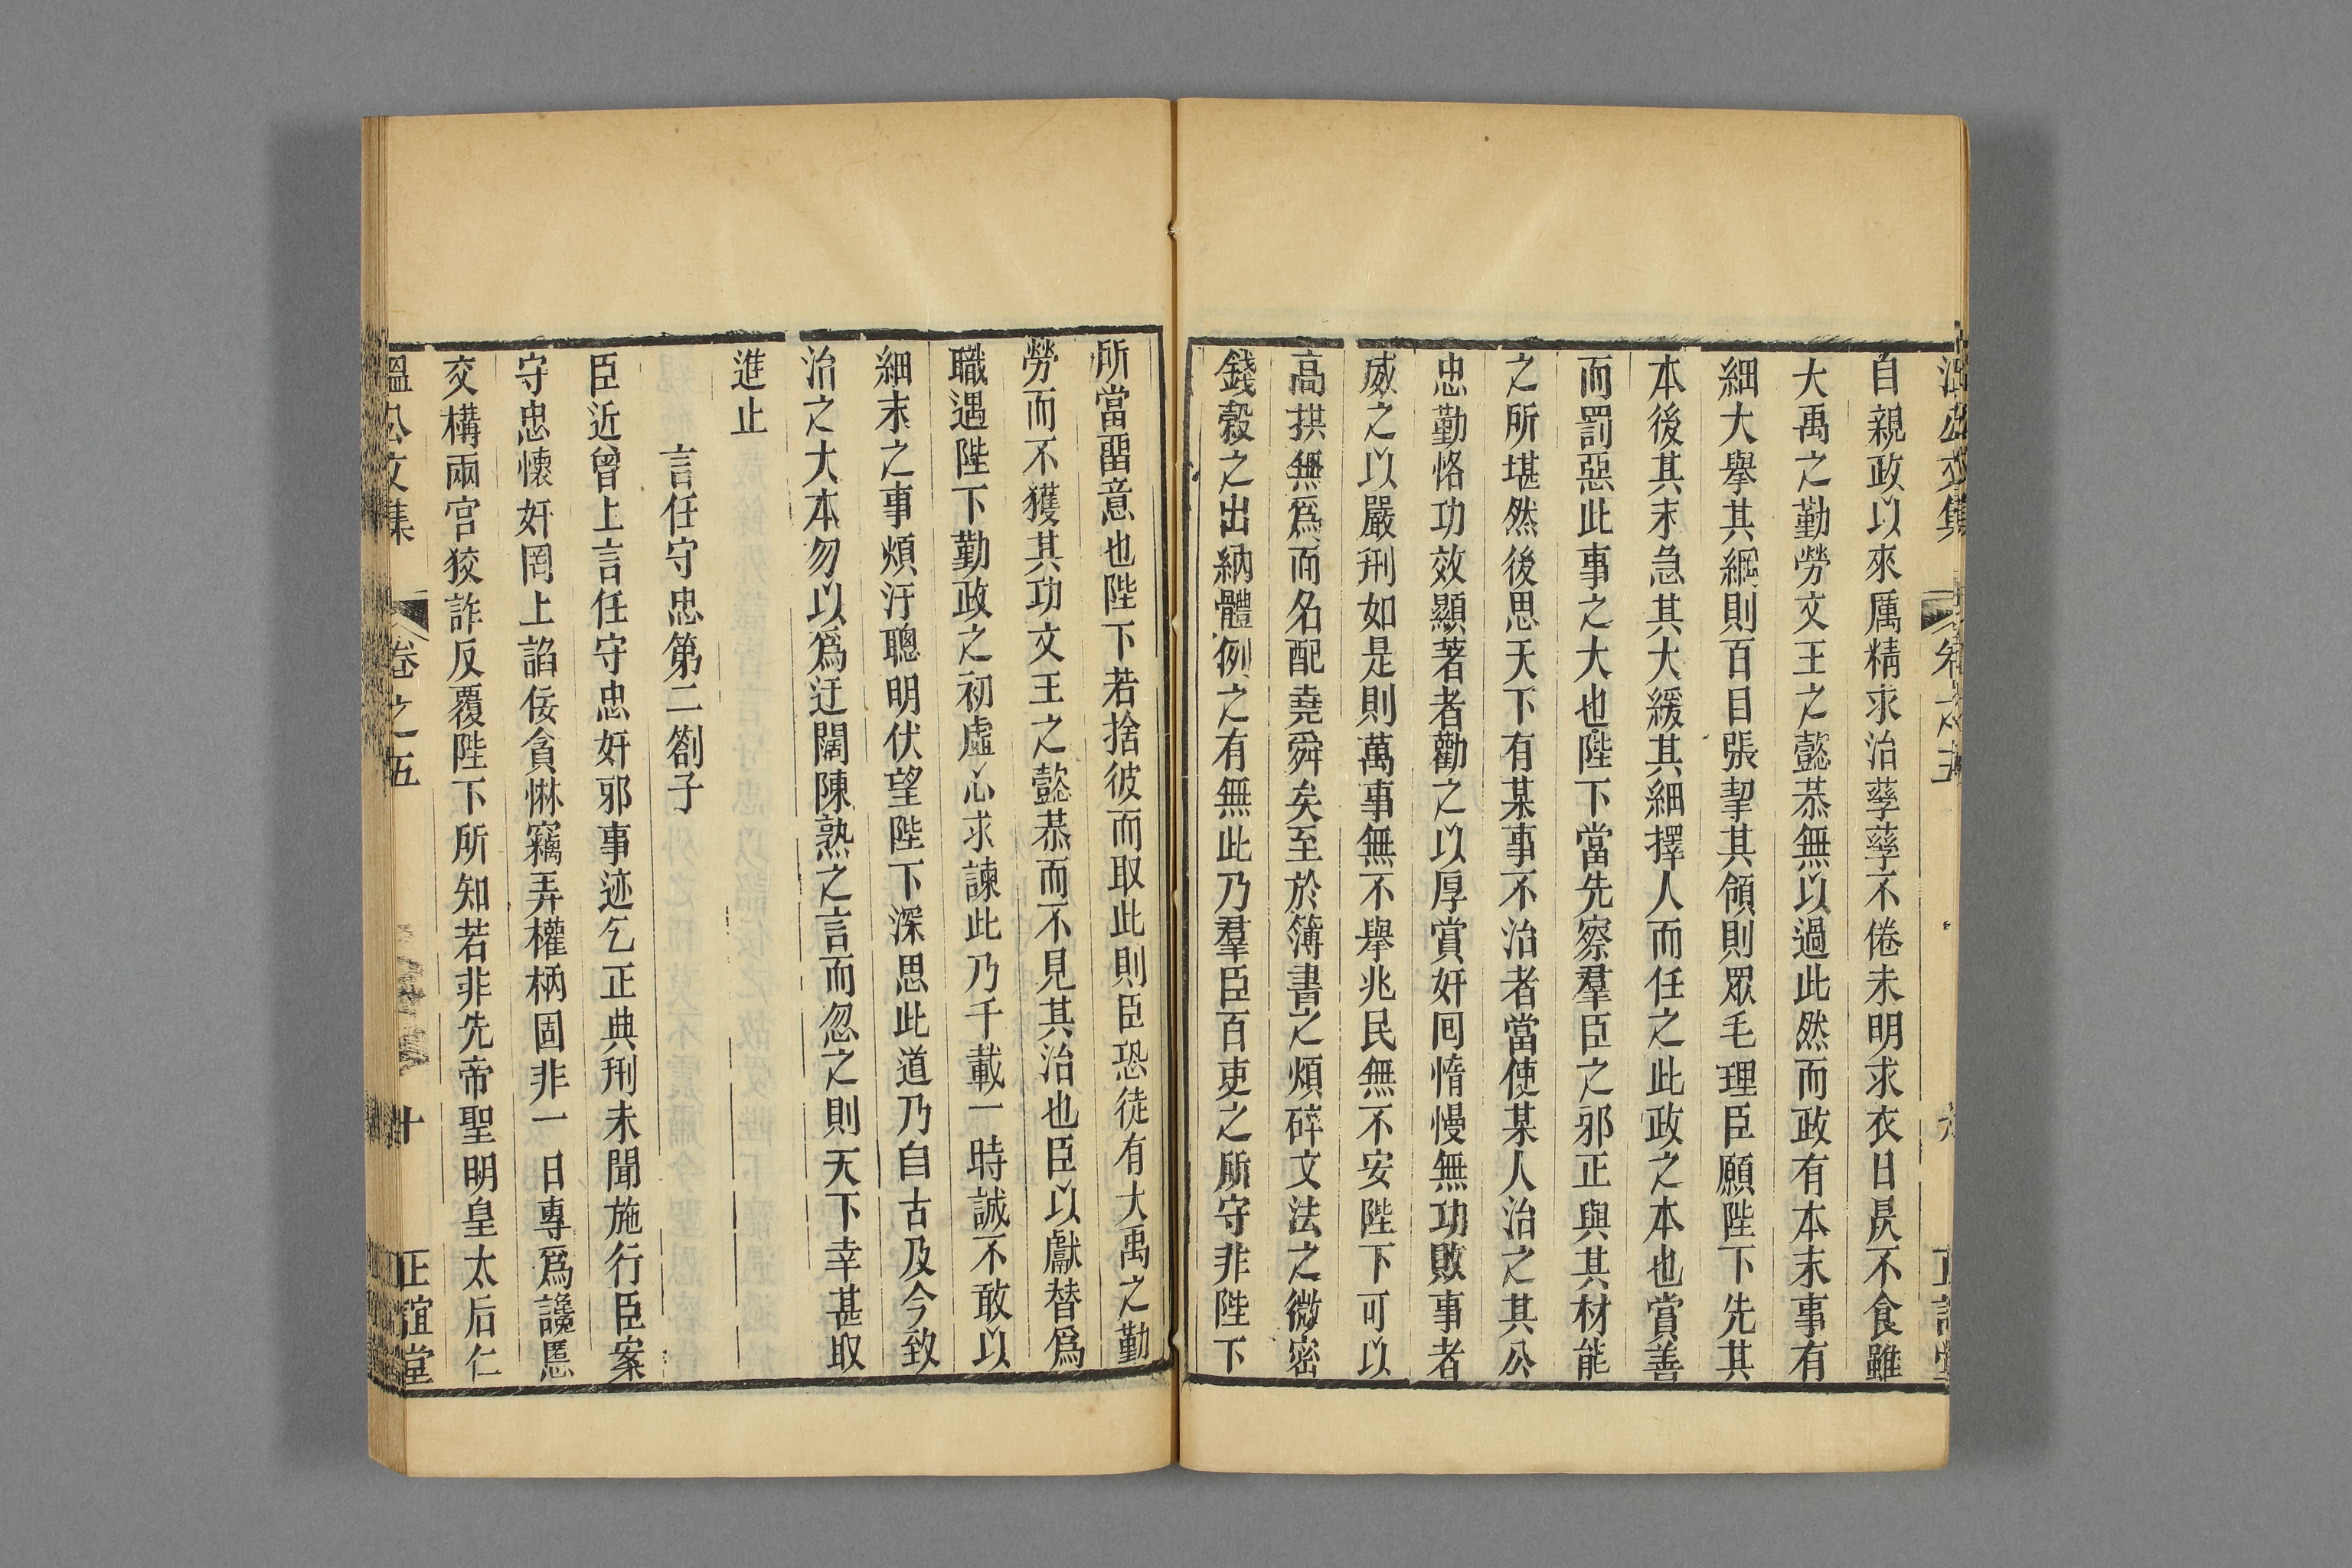 自親政以來厲精求治孳孳不倦未明求衣日昃不食雖
大禹之勤勞文王之懿恭無以過此然而政有本末事有
細大舉其綱則百目張挈其領則眾毛理臣願陛下先其
本後其末急其大緩其細擇人而任之此政之本也賞善
而罰惡此事之大也陛下當先察羣臣之邪正與其材能
之所堪然後思天下有某事不治者當使某人治之其公
忠勤恪功效顯著者勸之以厚賞奸囘惰慢無功敗事者
威之以嚴刑如是則萬事無不舉兆民無不安陛下可以
高拱無爲而名配堯舜矣至於簿書之煩碎文法之微密
錢穀之出納體例之有無此乃羣臣百吏之所守非陛下
所當畱意也陛下若捨彼而取此則臣恐徒有大禹之勤
勞而不獲其功文王之懿恭而不見其治也臣以獻替爲
職遇陛下勤政之初虛心求諫此乃千載一時誠不敢以
細末之事煩汙聰明伏望陛下深思此道乃自古及今致
治之大本勿以爲迂闊陳熟之言而忽之則天下幸甚取
進止
言任守忠第二劄子
臣近曾上言任守忠奸邪事迹乞正典刑未聞施行臣案
守忠懷奸罔上諂佞貪惏竊弄權柄固非一日專爲讒慝
交構兩宮狡詐反覆陛下所知若非先帝聖明皇太后仁
溫公文集 卷之五 十 正誼堂